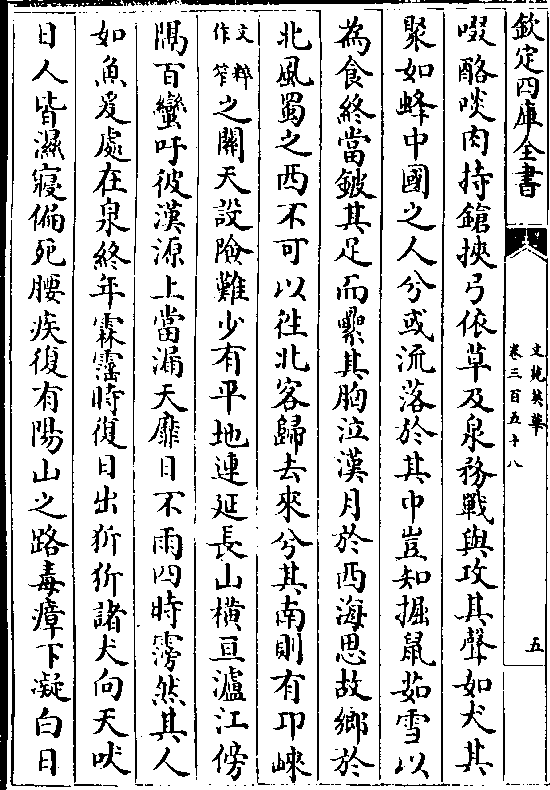 欽定四庫全書
文苑英華
卷三百五十八
五
啜酪啖肉持鎗挾弓依草及泉務戰與攻其聲如犬其
聚如蜂中國之人兮或流落於其中豈知掘鼠茹雪以
為食終當鈹其足而㬥其胸泣漢月於西海思故鄉於
北風蜀之西不可以往北客歸去來兮其南則有邛崍
文粹
作笮
之關天設險難少有平地連延長山橫亘瀘江傍
隅百蠻吁彼漢源上當漏天靡日不雨四時霶然其人
如魚爰處在泉終年霖霪時復日出狺狺諸犬向天吠
日人皆濕寢偏死腰疾復有陽山之路毒瘴下凝白日